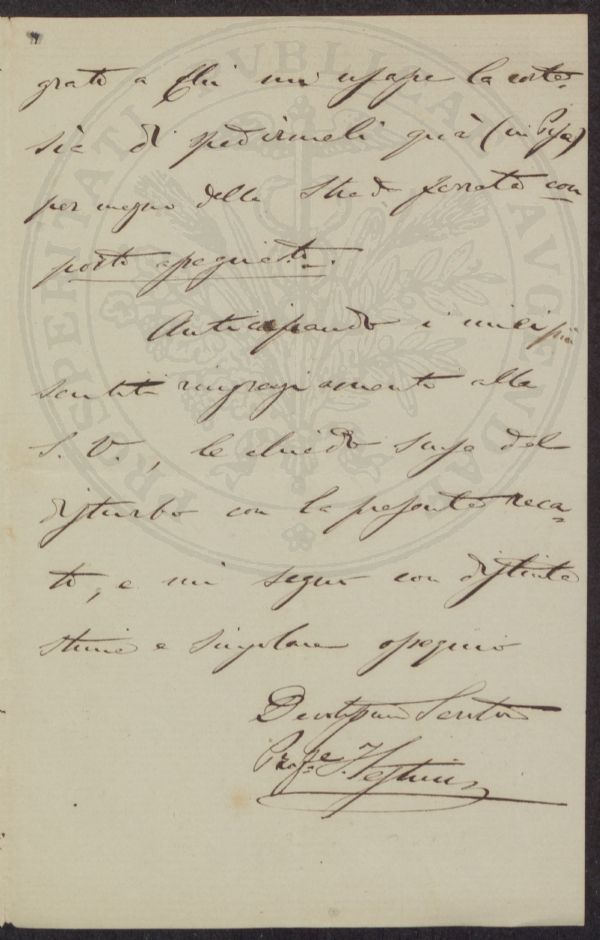 grato a Chi mi usasse la corte-
sia di spedirmeli quà (in Pisa)
per mezzo della Strada ferrata con
porto assegnato.
Anticipando i miei più
sentiti ringraziamenti alla
S. V., le chiedo scusa del
disturbo con la presente reca-
to, e mi segno con distinta
stima e singolare ossequio
Devotissimo Servitore
Profre
PROSPERITATI PVBLICAE AVGENDAE